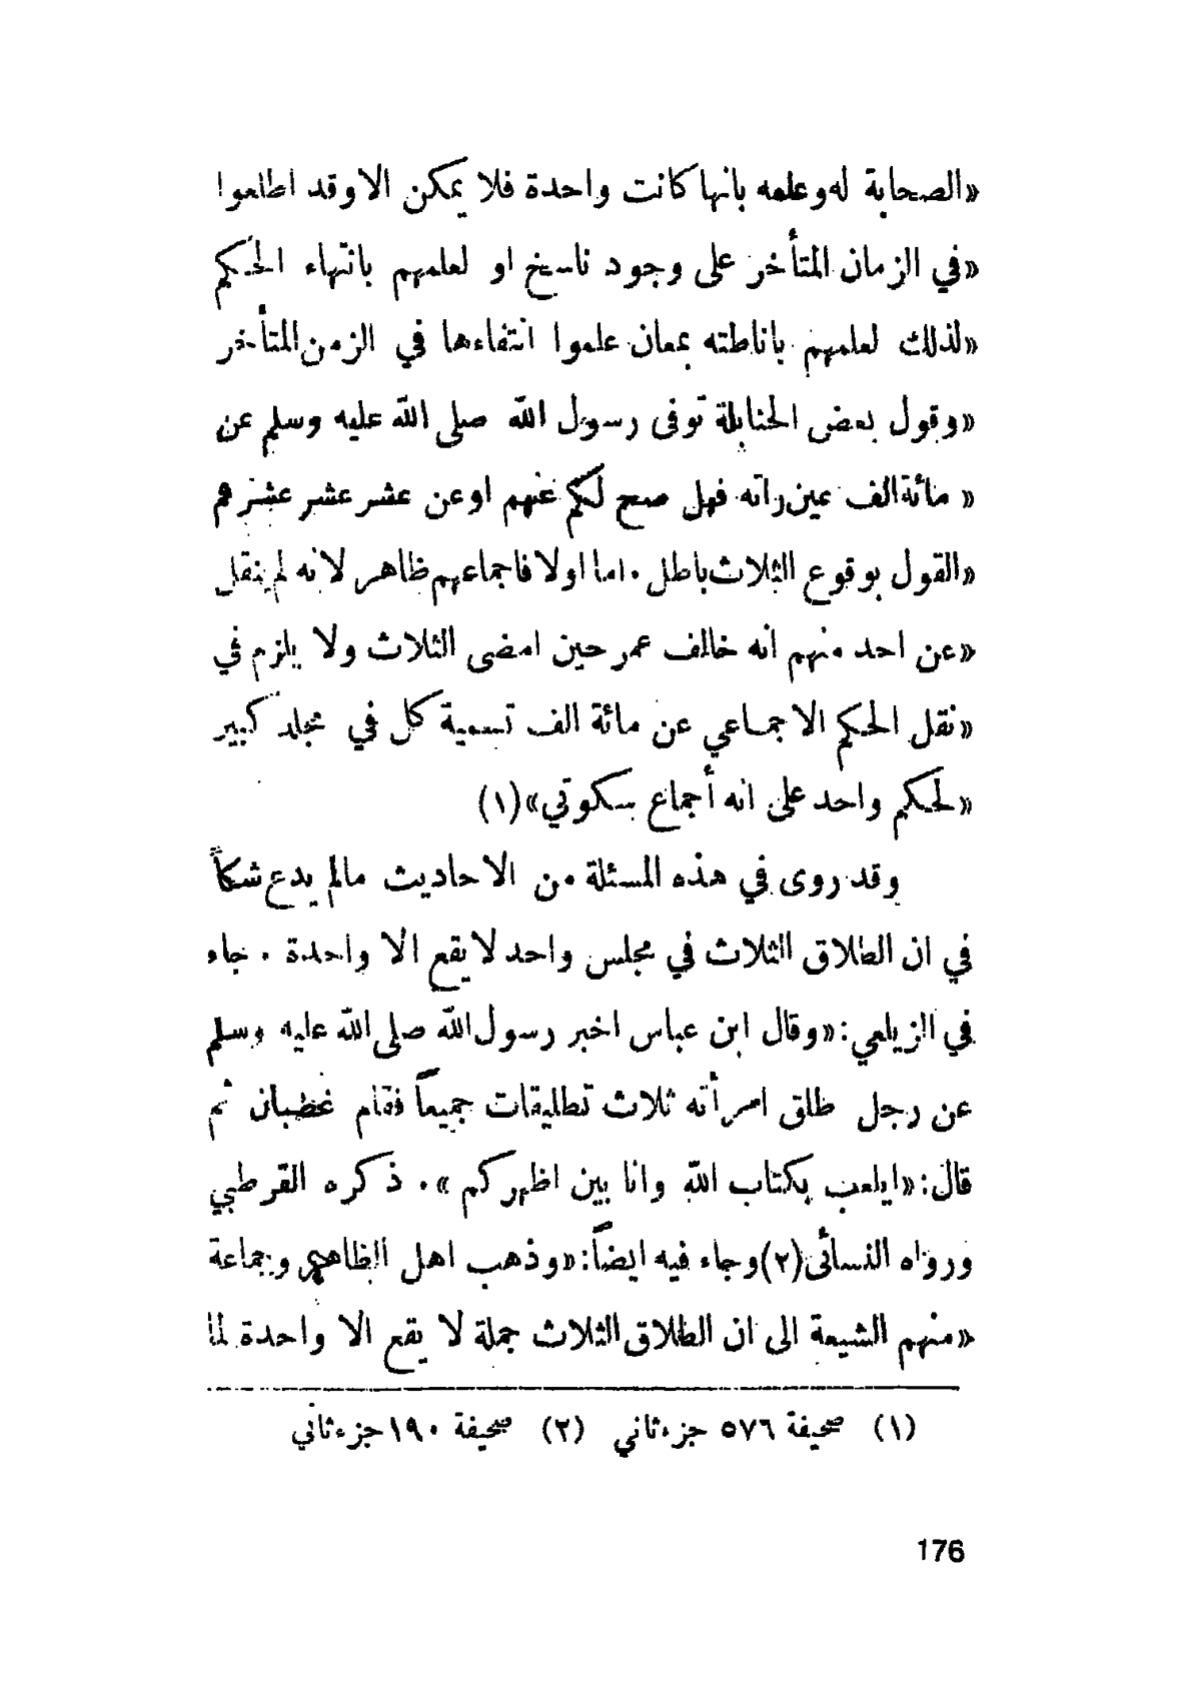 «الصحابة له وعلمه بانها كانت واحدة فلا يمكن الا وقد اطلعوا
«في الزمان المتأخر على وجود ناسخ او لعلمهم بانتهاء الحكم
«لذلك لعلمهم باناطته بمعان علموا انتفاءها في الزمن المتأخر
«وقول بعض الحنابلة توفى رسول الله صلى الله عليه وسلم عن
« مائة الف عين رأته فهل صح لكم عنهم او عن عشر عشر عشرهم
«القول بوقوع الثلاث باطل . اما اولا فاجماعهم ظاهر لانه لم ينقل
«عن احد منهم انه خالف عمر حين امضى الثلاث ولا يلزم في
«نقل الحكم الاجماعي عن مائة الف تسمية كل في مجلد كبير
«لحكم واحد على انه أجماع سكوتي»(١)
وقد روى في هذه المسئلة من الاحاديث مالم يدع شكاً
في ان الطلاق الثلاث في مجلس واحد لا يقع الا واحدة . جاء
في الزيلعي: «وقال ابن عباس اخبر رسول الله صلى الله عليه وسلم
عن رجل طلق امرأته ثلاث تطليقات جميعاً فقام غضبان ثم
قال: «ايلعب بكتاب الله وانا بين اظهركم ». ذكره القرطبي
ورواه النسائى(٢)وجاء فيه ايضاً: «وذهب اهل الظاهر وجماعة
«منهم الشيعة الى ان الطلاق الثلاث جملة لا يقع الا واحدة لما
(١) صحيفة ٥٧٦ جزء ثاني (٢) صحيفة ١٩٠ جزء ثاني
176